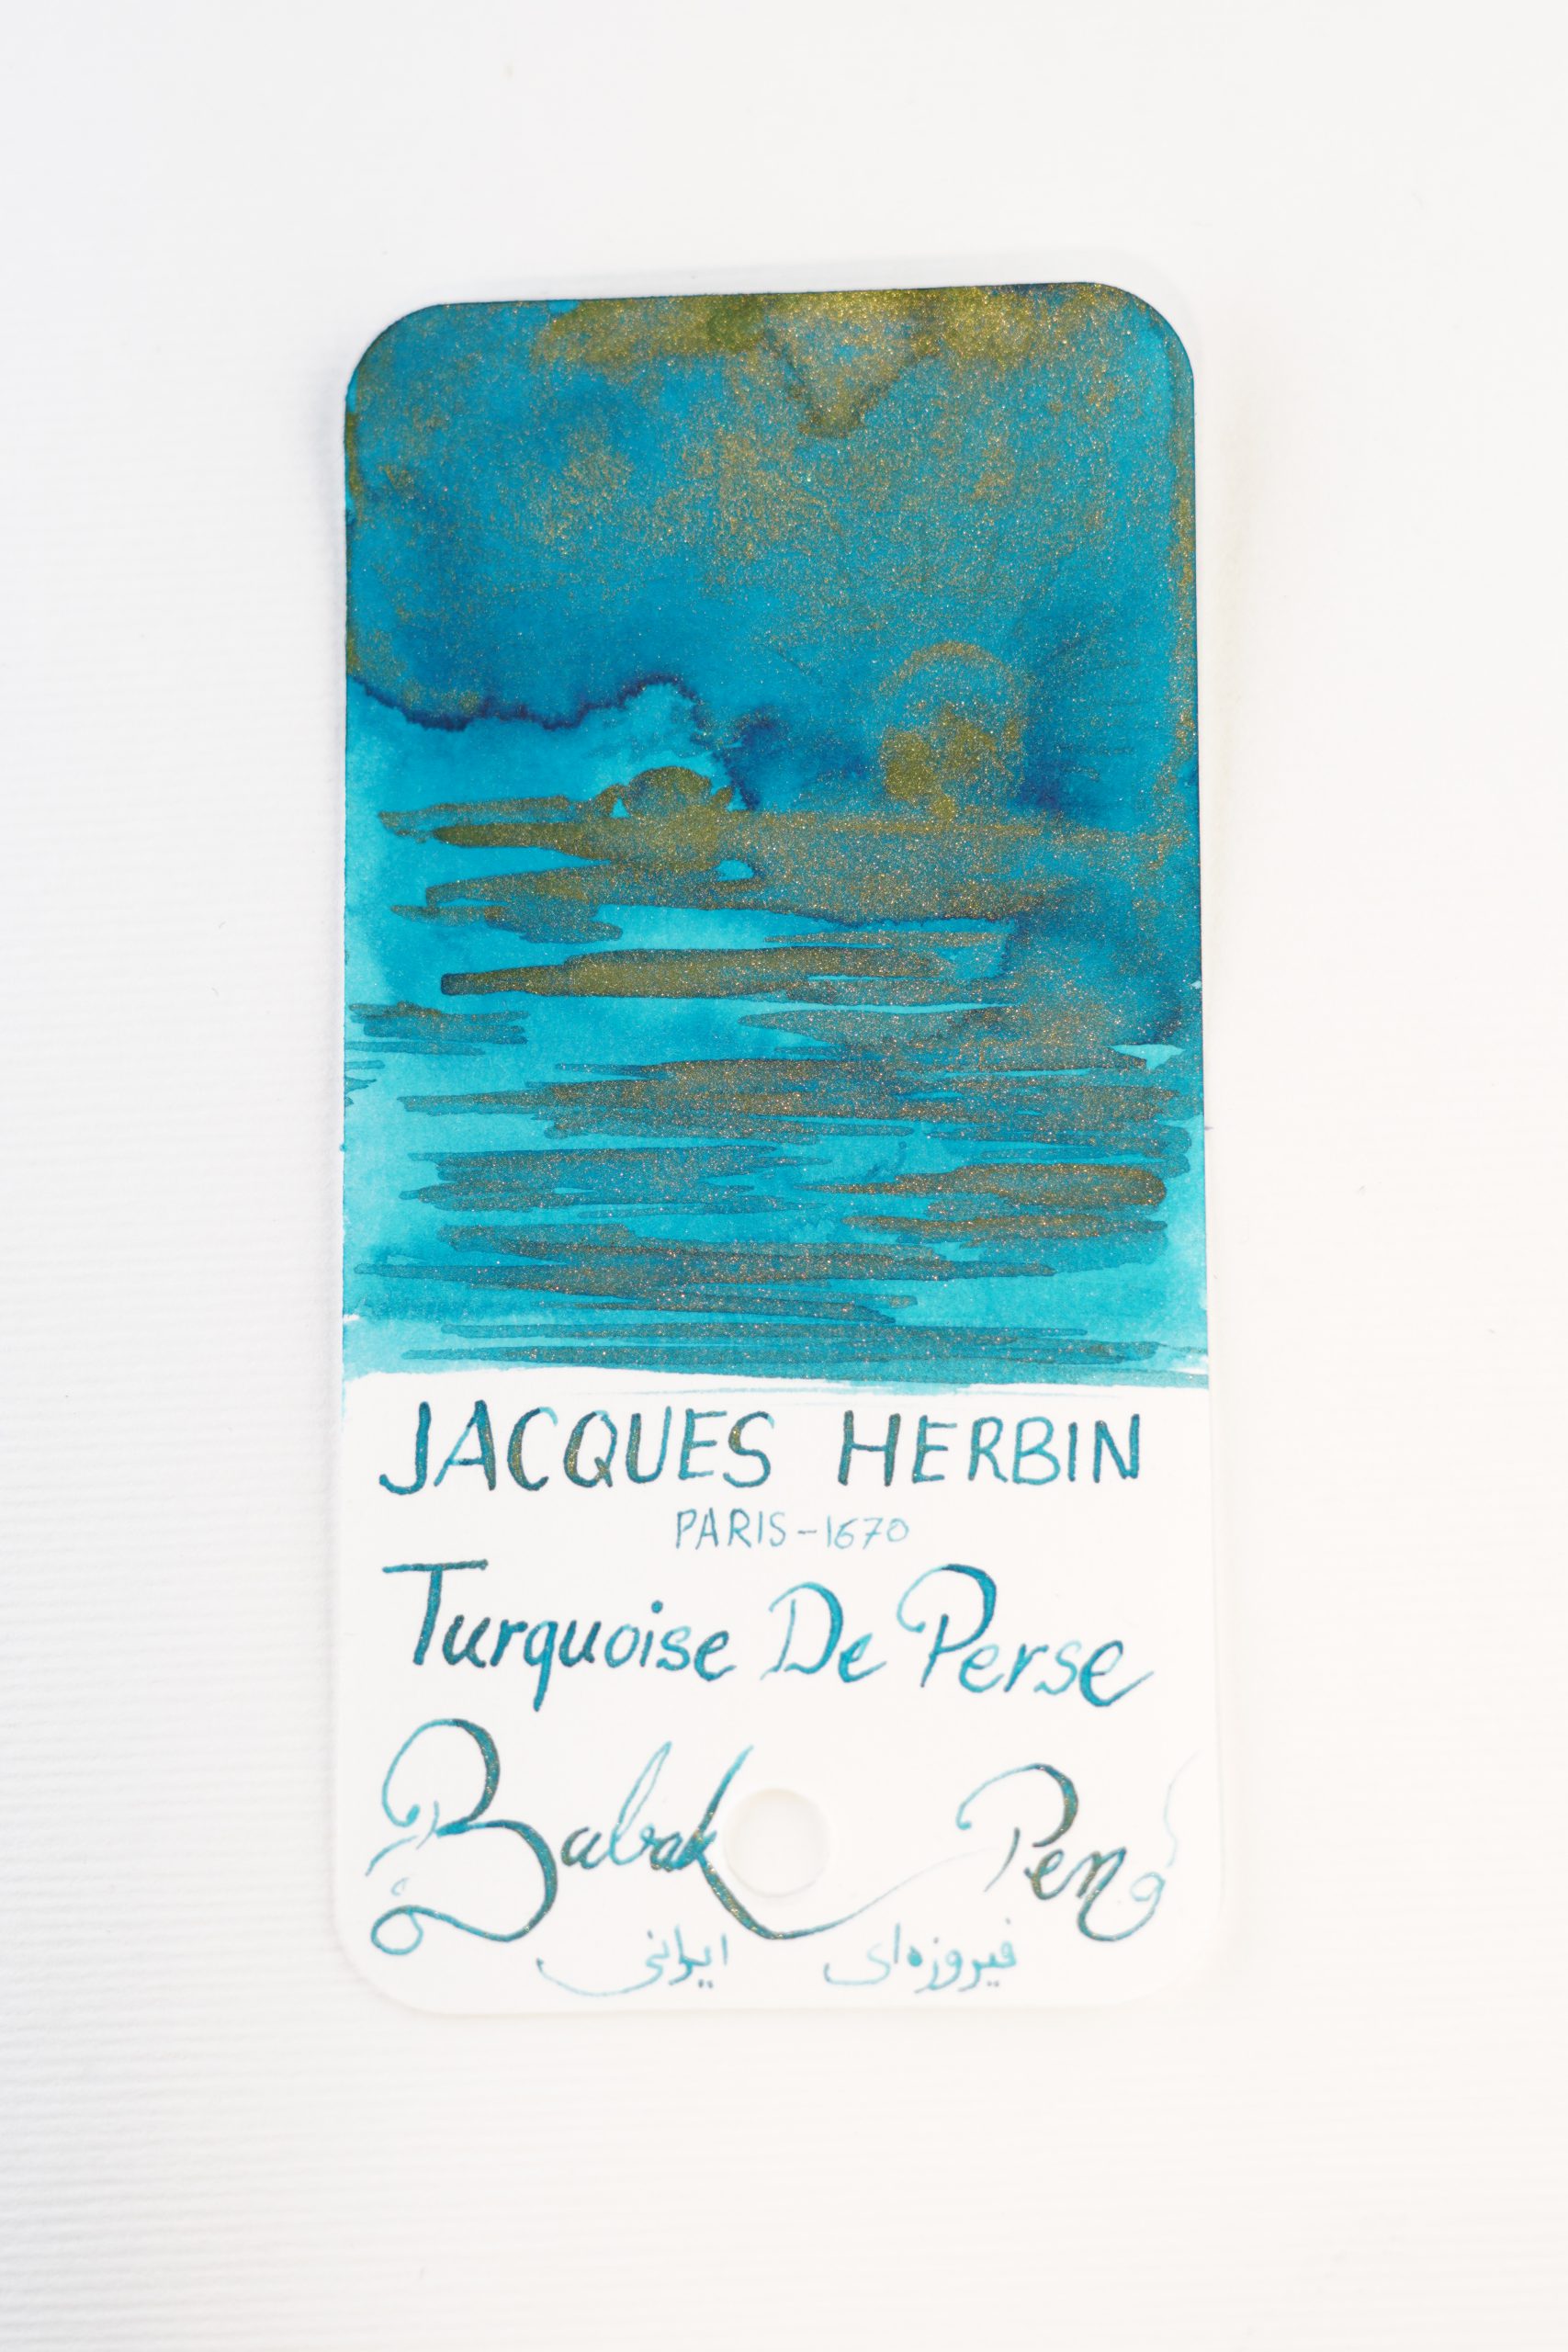 JACQUES HERBIN
PARIS-1670
Turquoise De Perse
Babak Pen
فیروزه‌ای ایرانی